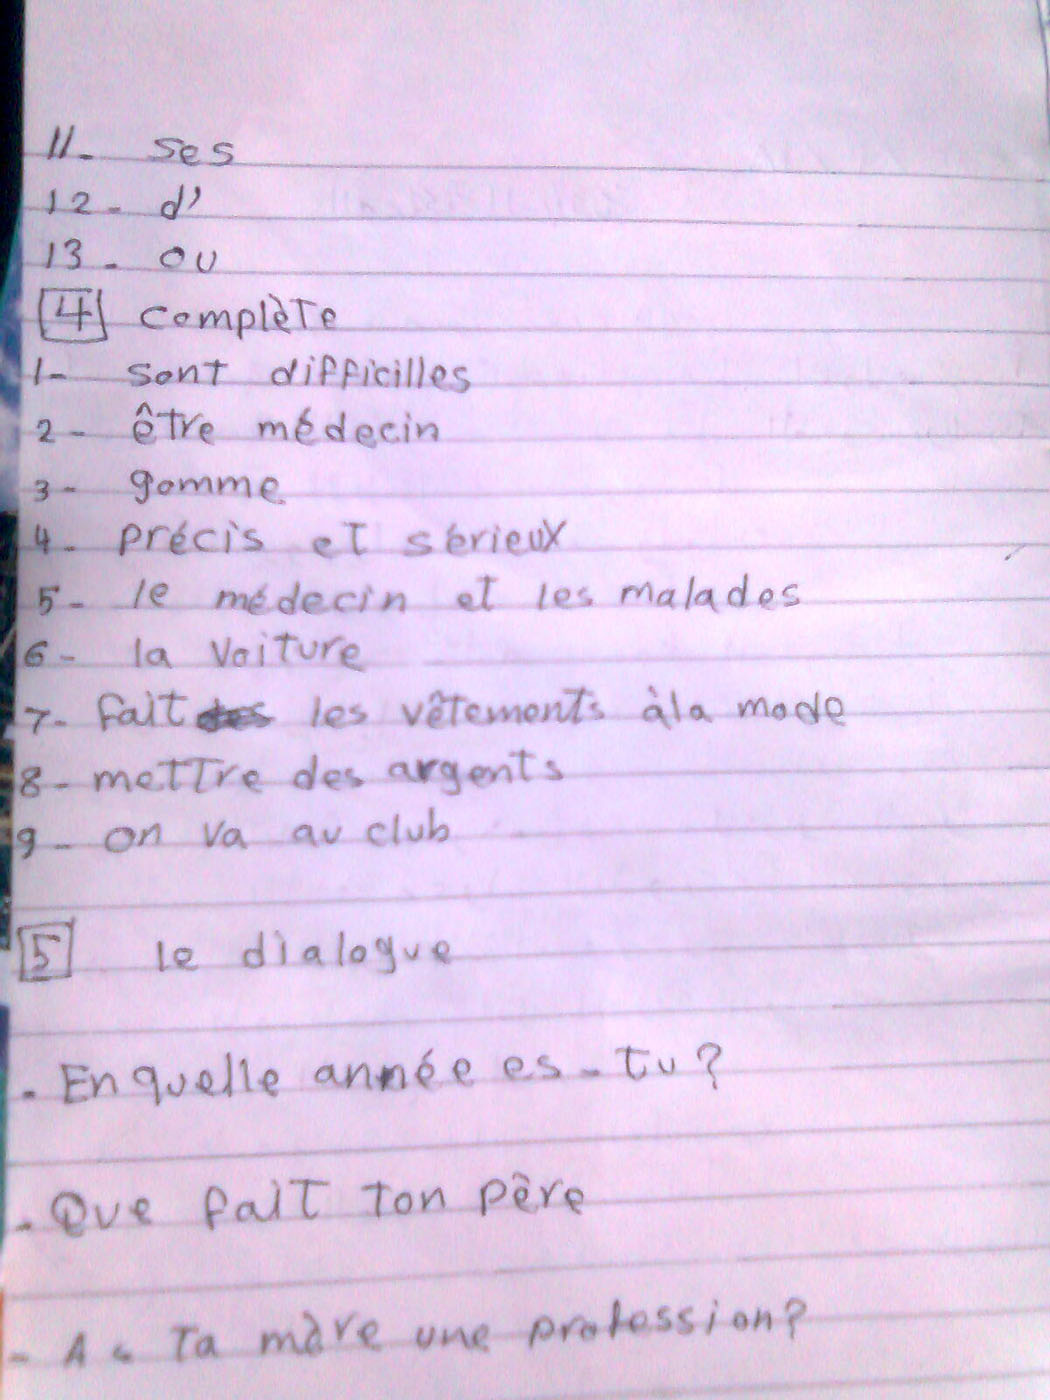 11- ses
12- d'
13- ou
4 complète
1- sont difficilles
2- être médecin
3- gomme
4- précis et sérieux
5- le médecin et les malades
6- la voiture
7- fait les vêtements àla mode
8- mettre des argents
9- on va au club
5 le dialogue
- En quelle année es-tu?
- Que fait ton père
- A - Ta mère une profession?